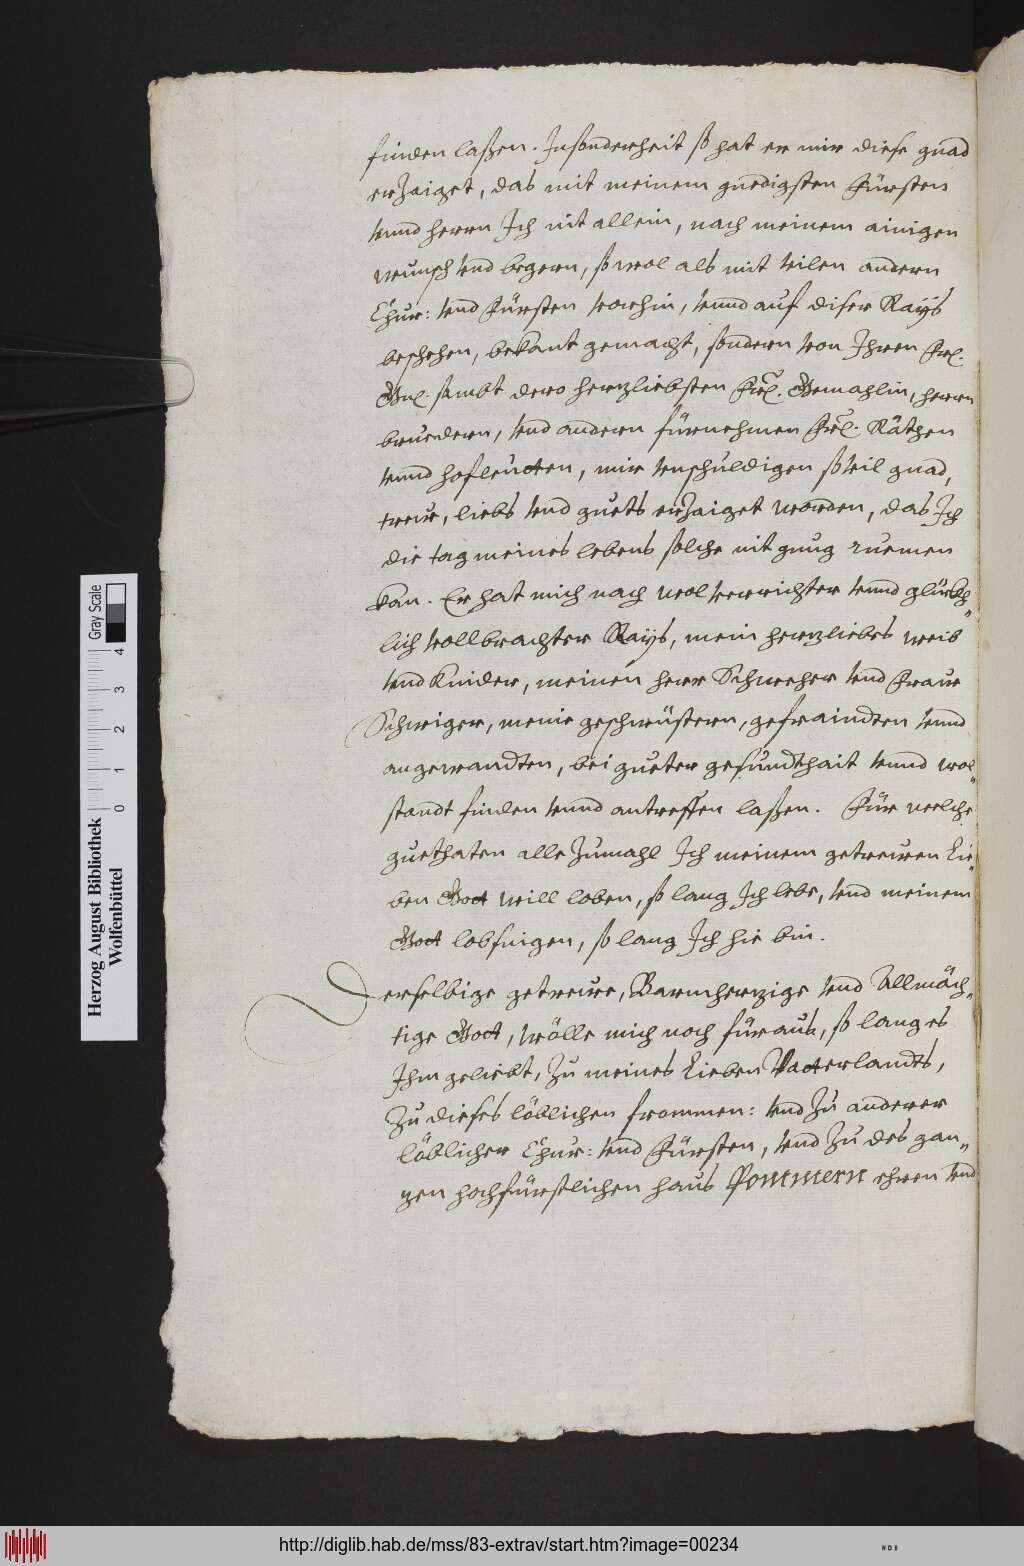 finden laßen. Insonderheit so hat er mir diese gnad
erzaiget, das mit meinem gnedigsten Fürsten
vnnd herrn Ich nit allein, nach meinem ainigen
wunsch vnd begern, so wol als mit vilen andern
Chur: vnd Fürsten vorhin, vnnd auf diser Rayß
beschehen, bekant gemacht, sondern von Ihren Frl.
Gnl. sambt dero herzliebsten Frl. Gemahlin, herrn
bruedern, vnd andern fürnehmen Frl. Räthen
vnnd hofleutten, mir vnschuldigen so vil gnad,
treue, liebs vnd guets erzaiget worden, das Ich
die tag meines lebens solche nit gnug ruemen
kan. Er hat mich nach wol verrichter vnnd glückh„
lich vollbrachter Rayß, mein herzliebes weib
vnd Kinder, meinen herr Schweher vnd Fraue
Schwiger, meine geschwüstern, gefraindten vnnd
angewandten, bei gueter gesundthait vnnd wol„
standt finden vnnd antreffen laßen. Für welche
guethaten alle zumahl Ich meinem getreuen Lie„
ben Gott will loben, so lang Ich lebe, vnd meinem
Gott lobsingen, so lang Ich hie bin.
Derselbige getreue, Barmherzige vnd Allmäch„
tige Gott, wölle mich noch füraus, so lang es
Ihm geliebt, zu meines Lieben Vatterlandts,
zu dieses löblichen frommen: vnd zu anderer
löblicher Chur: vnd Fürsten, vnd zu des gan„
zen hochfürstlichen haus Pommern ehren vnd
Herzog August Bibliothek
Wolfenbüttel
0 1 2 3 4
Gray Scale
http://diglib.hab.de/mss/83-extrav/start.htm?image=00234